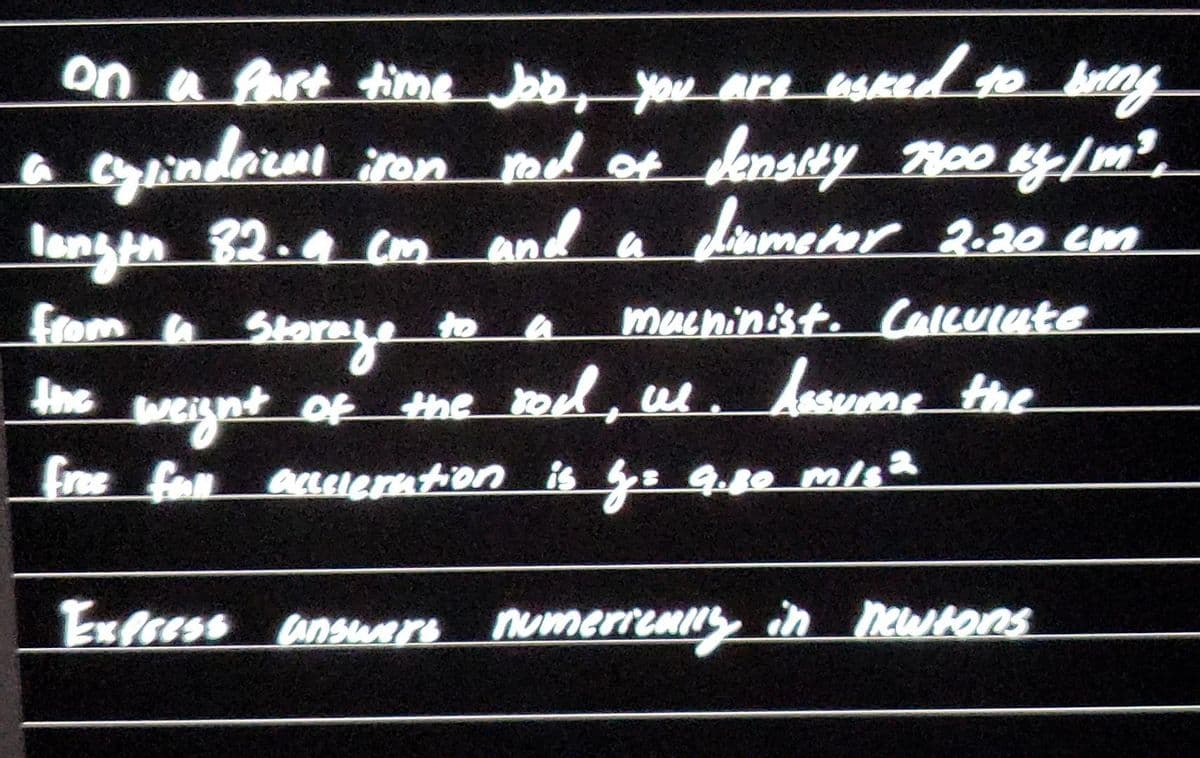 on a Part time Job, you are asked to bring
a cylindrical iron rod of density 7800 kg/m³,
length 82.9 cm and a diameter 2.20 cm
from a storage to a machinist. Calculate
the weight of the rod, w. Assume the
free fall acceleration is g = 9.80 m/s²
Express answers numerically in newtons